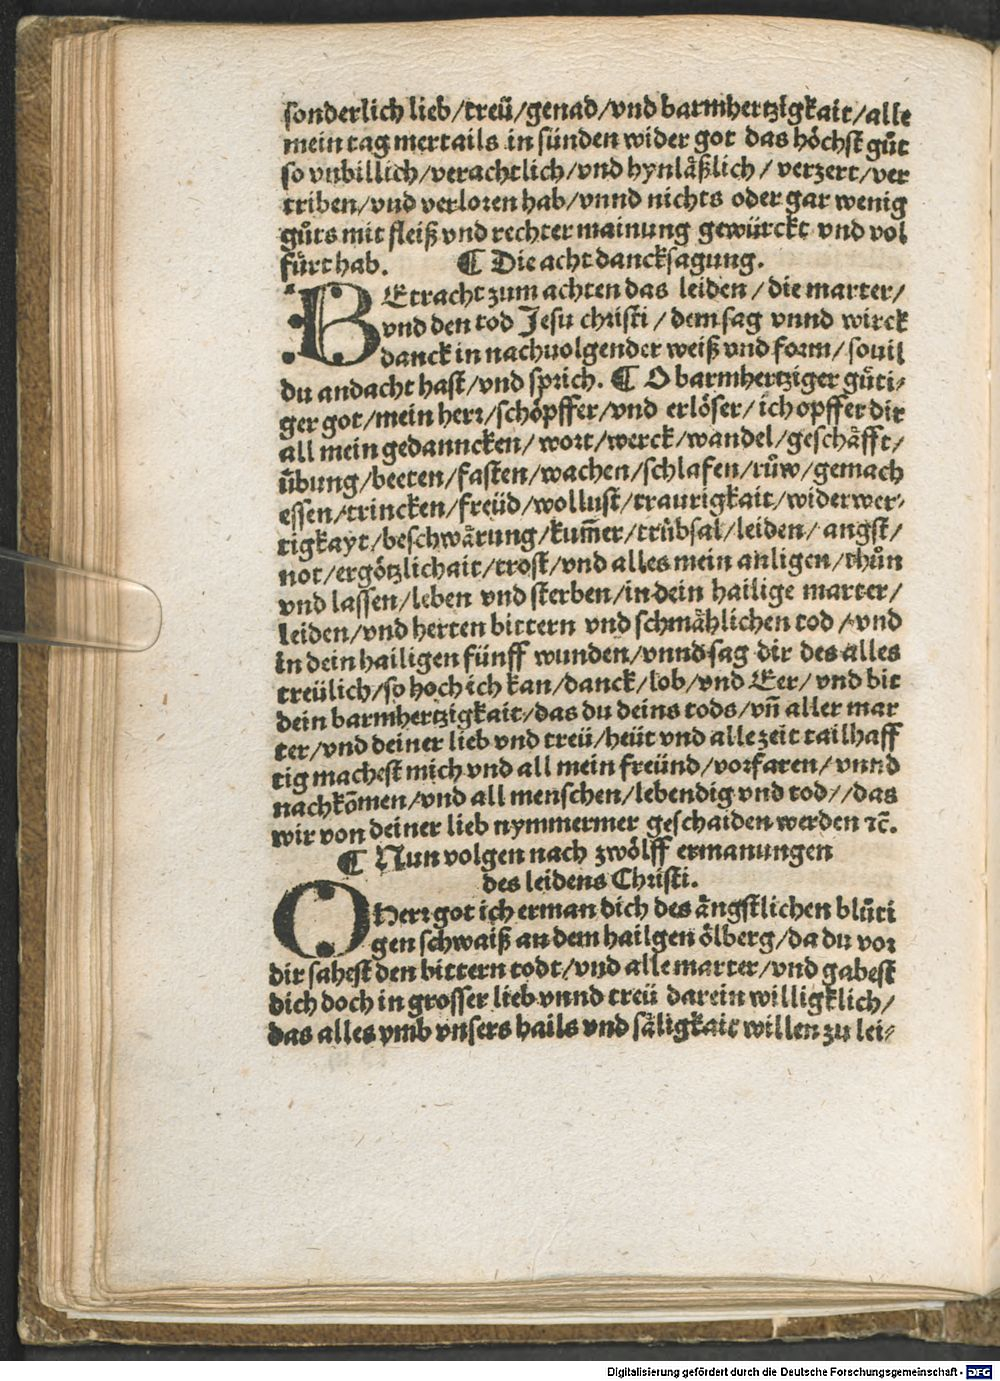 sonderlich lieb/treü/genad/vnd barmhertzigkait/alle
mein tag mertails in sünden wider got das höchst gůt
so vnbillich/verachtlich/vnd hynläßlich/ verzert/ver
triben/vnd verloren hab/vnnd nichts oder gar wenig
gůts mit fleiß vnd rechter mainung gewürckt vnd vol
fürt hab. ¶ Die acht dancksagung.
BEtracht zum achten das leiden/die marter/
vnd den tod Jesu christi/dem sag vnnd wirck
danck in nachuolgender weiß vnd form/souil
du andacht hast/vnd sprich. ¶ O barmhertziger güti-
ger got/mein herr/schöpffer/vnd erlöser/ich opffer dir
all mein gedanncken/wort/werck/wandel/geschäfft/
übung/beeten/fasten/wachen/schlafen/růw/gemach
essen/trincken/freüd/wollust/traurigkait/widerwer-
tigkayt/beschwärung/kum̄er/trübsal/leiden/angst/
not/ergötzlichait/trost/vnd alles mein anligen/thůn
vnd lassen/leben vnd sterben/in dein hailige marter/
leiden/vnd herten bittern vnd schmählichen tod/vnd
in dein hailigen fünff wunden/vnnd sag dir des alles
treülich/so hoch ich kan/danck/lob/vnd Eer/vnd bit
dein barmhertzigkait/das du deins tods/vn̄ aller mar
ter/vnd deiner lieb vnd treü/heüt vnd alle zeit tailhaff
tig machest mich vnd all mein freünd/vorfaren/vnnd
nachkōmen/vnd all menschen/lebendig vnd tod//das
wir von deiner lieb nymmermer geschaiden werden ⁊c̄.
¶ Nun volgen nach zwölff ermanungen
des leidens Christi.
O herr got ich erman dich des ängstlichen blüti
gen schwaiß an dem hailgen ölberg/da du vor
dir sahest den bittern todt/vnd alle marter/vnd gabest
dich doch in grosser lieb vnnd treü darein willigklich/
das alles vmb vnsers hails vnd säligkait willen zu lei-
Digitalisierung gefördert durch die Deutsche Forschungsgemeinschaft - DFG